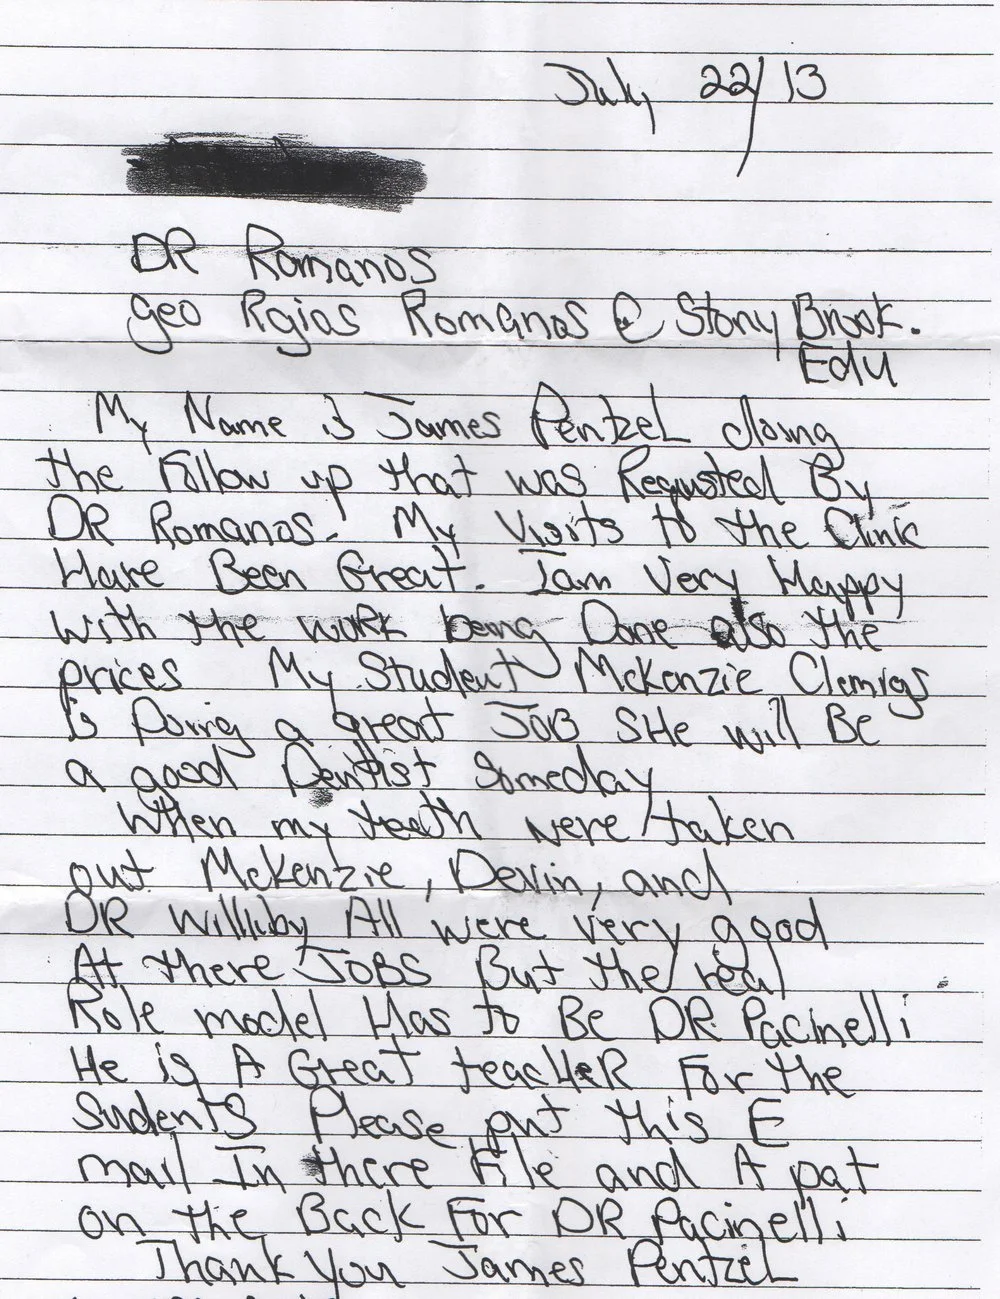 July 22/13
DR Romanos
geo Rgios Romanos @ Stony Brook.
Edu
My Name is James Pentzel doing
the Follow up that was Requsted By
DR Romanos. My Visits to the Clinic
Have Been Great. I am Very Happy
with the work being Done also the
prices My Student Mckenzie Clemigs
is Doing a great JOB SHe will Be
a good Dentist Someday
When my teeth were taken
out Mckenzie, Devin, and
DR Willuby All were very good
At there JOBS But the real
Role model Has to Be DR Pacinelli
He is A Great teacHeR For the
SudentS Please put this E
mail In there File and A pat
on the Back For DR Pacinelli
Thank You James Pentzel